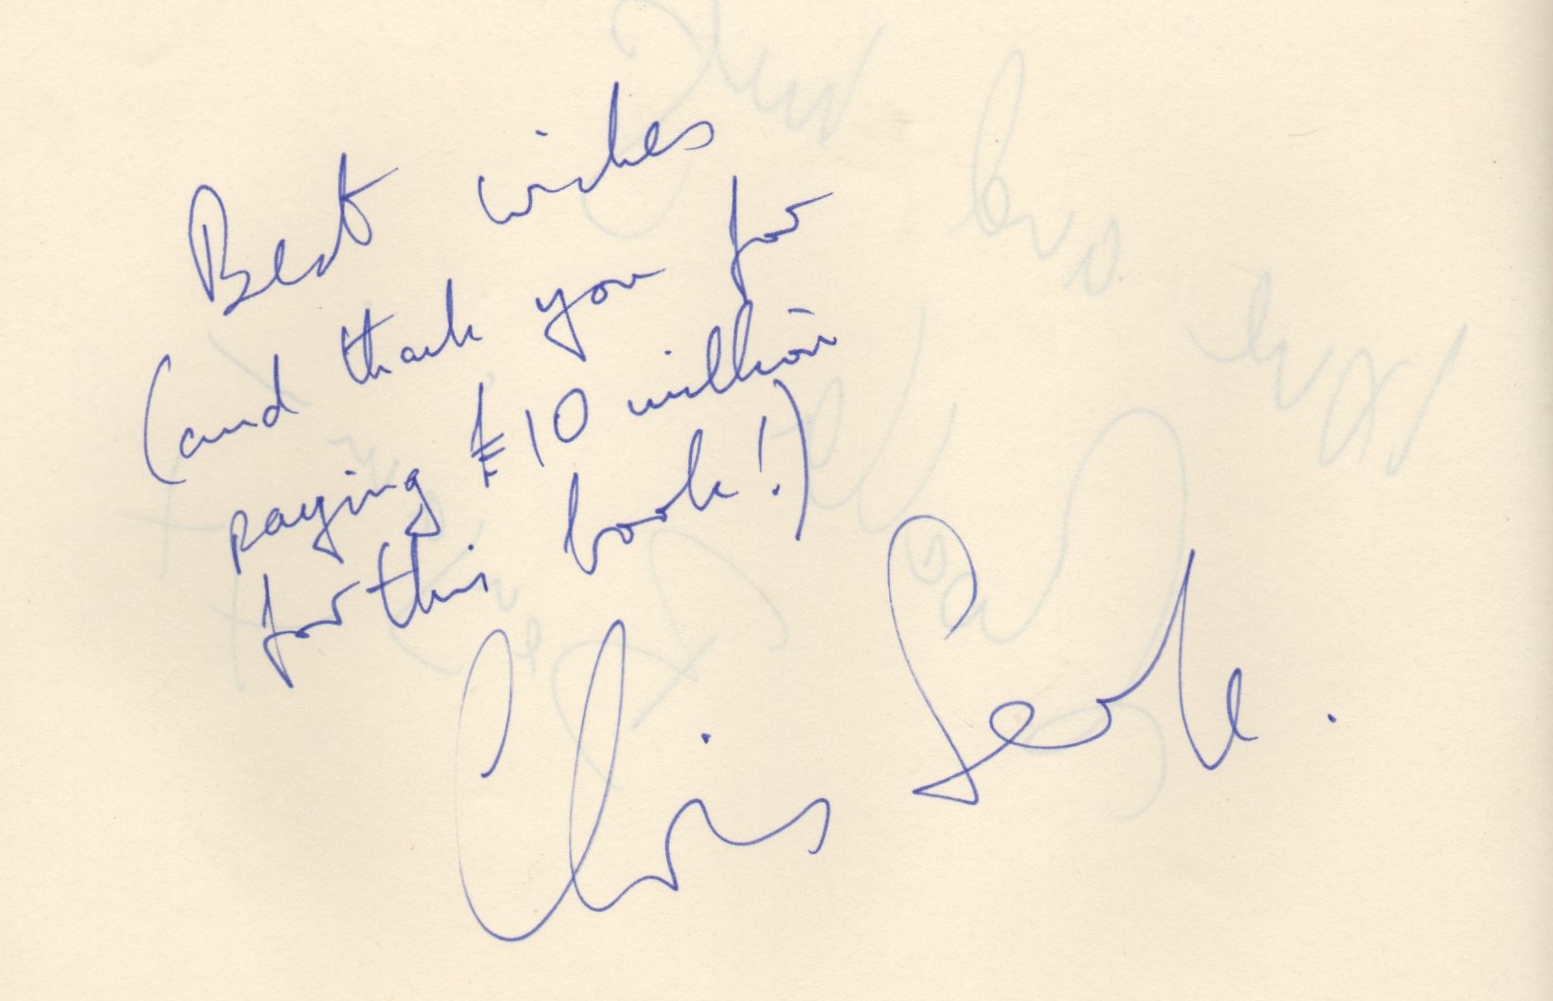 Best wishes
(and thank you for
paying £10 million
for this book!)
Chris Serle.